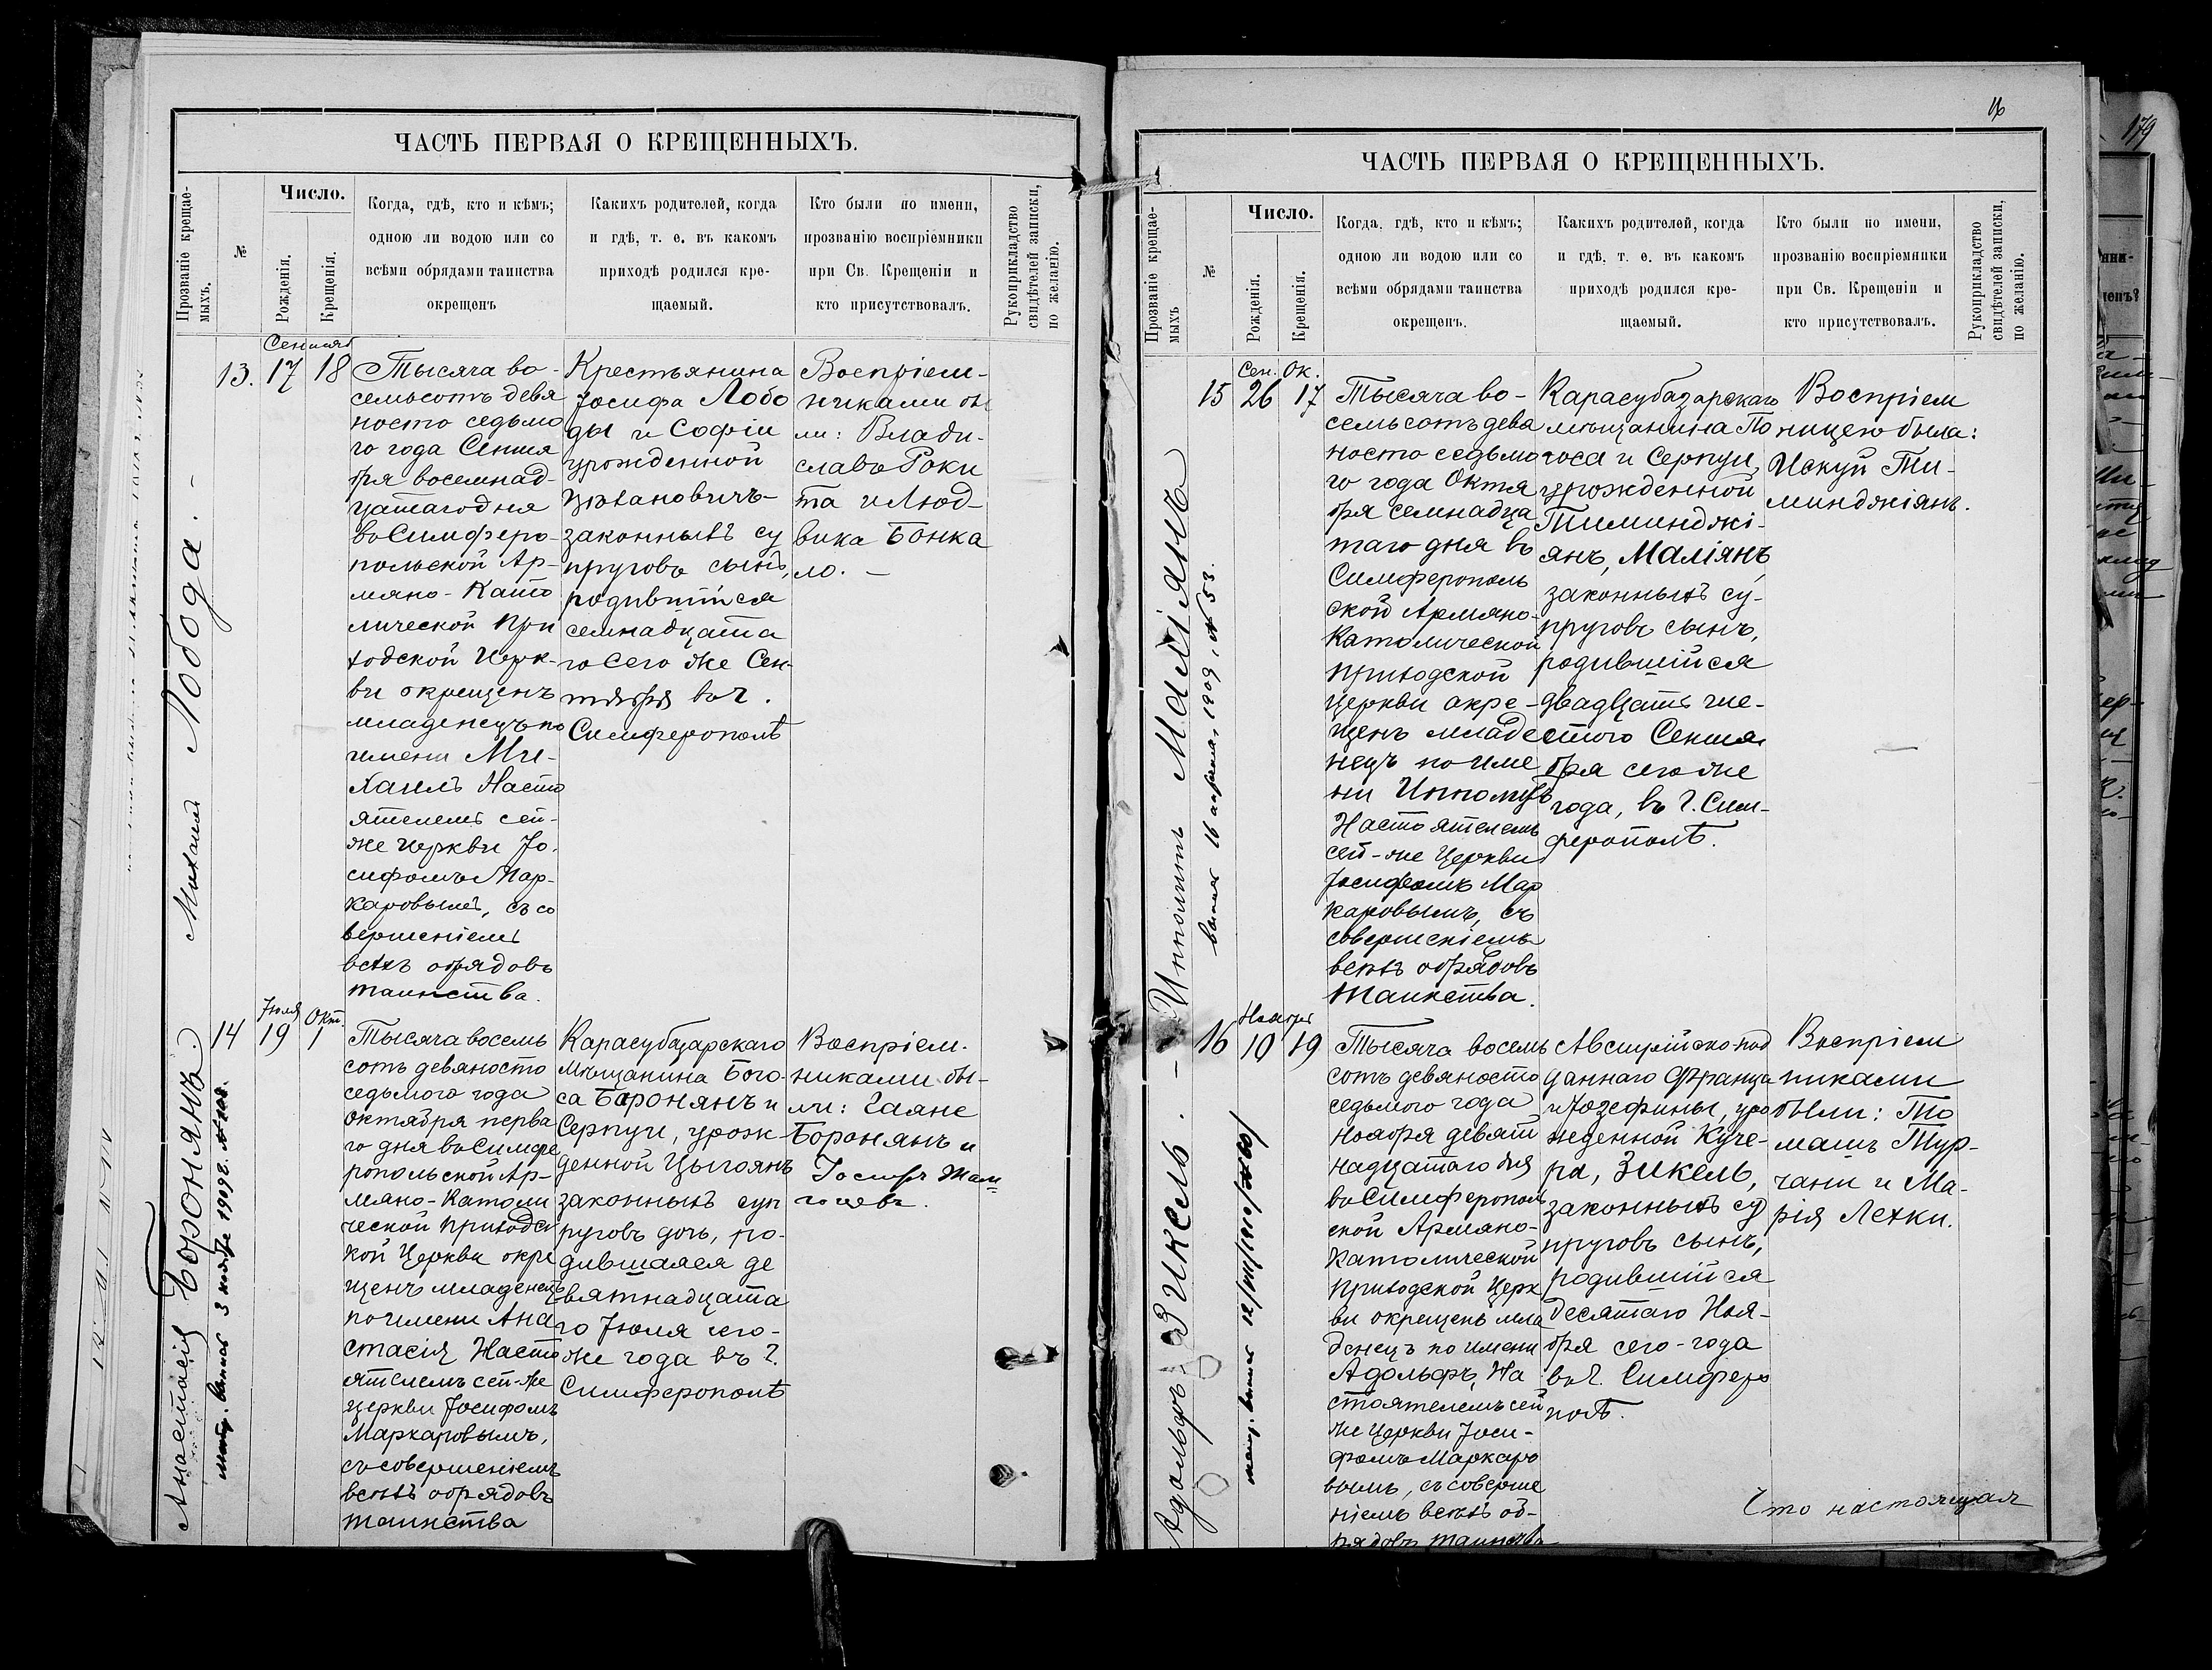 ЧАСТЬ ПЕРВАЯ О КРЕЩЕННЫХЪ.
Прозваніе крещае-
мыхъ.
№
Число.
Рожденія.
Крещенія.
Когда, гдѣ, кто и кѣмъ;
одною ли водою или со
всѣми обрядами таинства
окрещенъ
Какихъ родителей, когда
и гдѣ, т. е. въ какомъ
приходѣ родился кре-
щаемый.
Кто были по имени,
прозванію воспріемники
при Св. Крещеніи и
кто присутствовалъ.
Рукоприкладство
свидѣтелей записки,
по желанію.
Михаилъ Лобода. -
13.
17 18
Тысяча во-
семьсотъ девя
носто седьмо
го года Сентя
бря восемнад-
цатаго дня
въ Симферо-
польской Ар-
мяно-Като
лической При
ходской Церк-
ви окрещенъ
младенецъ по
имени Ми-
хаилъ Насто
ятелемъ сей-
же Церкви Іо-
сифомъ Мар-
каровымъ, съ со
вершеніемъ
всѣхъ обрядовъ
таинства.
Крестьянина
Іосифа Лобо
ды и Софіи
урожденной
законныхъ су
пруговъ сынъ,
родившійся
семнадцата
го сего же Сен-
тября въ г.
Симферополѣ
Воспріем-
никами бы
ли: Влади-
славъ Роки
та и Люд-
вика Бонка
ло. -
Анастасія Боронянъ.
14
Іюля Окт.
19 1
Тысяча восемь
сотъ девяносто
седьмого года
Октября перва
го дня въ Симфе
ропольской Ар-
мяно-Католи
ческой Приходс
кой Церкви окре
щенъ младенецъ
по имени Ана
стасія Насто
ятелемъ сей-же
церкви Іосифомъ
Маркаровымъ,
съ совершеніемъ
всѣхъ обрядовъ
таинства
Карасубазарскаго
Мѣщанина Бого-
са Боронянъ и
Серпуи, урож-
денной Цыгоянъ
законныхъ суп
руговъ дочь, ро-
дившаяся де
вятнадцата
го Іюля сего-
же года въ г.
Симферополѣ
Воспріем-
никами бы-
ли: Гаяне
Боронянъ и
Іосифъ
16
ЧАСТЬ ПЕРВАЯ О КРЕЩЕННЫХЪ.
Прозваніе крещае-
мыхъ
№
Число.
Рожденія.
Крещенія.
Когда, гдѣ, кто и кѣмъ;
одною ли водою или со
всѣми обрядами таинства
окрещенъ.
Какихъ родителей, когда
и гдѣ, т. е. въ какомъ
приходѣ родился кре-
щаемый.
Кто были по имени,
прозванію воспріемники
при Св. Крещеніи и
кто присутствовалъ.
Рукоприкладство
свидѣтелей записки,
по желанію.
Ипполитъ Маліянъ
16 апрѣля 1909 № 53.
15
Сен. Ок.
26 17
Тысяча во-
семьсотъ девя
носто седьмо
го года Октя
бря семнадца
таго дня въ
Симферополь
ской Армяно-
Католической
Приходской
Церкви окре-
щенъ младе
нецъ по име
ни Ипполитъ
Настоятелемъ
сей-же Церкви
Іосифомъ Мар
каровымъ, съ
совершеніемъ
всѣхъ обрядовъ
Таинства.
Карасубазарскаго
мѣщанина По
госа и Серпуи,
урожденной
Тиминджі-
янъ, Маліянъ
законныхъ су-
пруговъ сынъ,
родившійся
двадцать ше-
стого Сентя
бря сего же
года, въ г. Сим-
ферополѣ.
Воспріем
ницею была:
Искуи Ти-
минджіянъ.
Адольфъ Зикель.
16
Ноября
10 19
Тысяча восемь
сотъ девяносто
седьмого года
Ноября девят
надцатаго дня
въ Симферополь
ской Армяно-
Католической
Приходской Церк
ви окрещенъ мла
денецъ по имени
Адольфъ, На
стоятелемъ сей
же Церкви Іоси-
фомъ Маркаро
вымъ, съ соверше
ніемъ всѣхъ об-
рядовъ таинства
Австрійско-под
даннаго Франца
и Іозефины, уро
жденной Куче-
ра, Зикель,
законныхъ су
пруговъ сынъ,
родившійся
Десятаго Ноя-
бря сего-года
въ г. Симферо
полѣ.
Воспріем
никами
были: То
машъ Тур-
чани и Ма-
рія Лехки.
Что настоящая
179